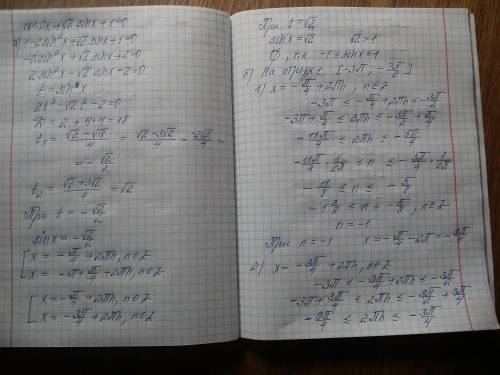 cos2x + √2 sinx + 1 = 0
а) 1 - 2sin²x + √2 sinx + 1 = 0
-2sin²x + √2 sinx + 2 = 0
2sin²x - √2 sinx - 2 = 0
t = sinx
2t² - √2 t - 2 = 0
= 2 + 4·4 = 18
t₁ = (√2 - √18)/4 = (√2 - 3√2)/4 = -2√2/4 =
= -√2/2
t₂ = (√2 + 3√2)/4 = √2
При t = -√2/2
sinx = -√2/2
[ x = -π/4 + 2πn, n∈Z
x = -π + π/4 + 2πn, n∈Z
[ x = -π/4 + 2πn, n∈Z
x = -3π/4 + 2πn, n∈Z
При t = √2
sinx = √2 √2 > 1
∅, т.к. -1 ≤ sinx ≤ 1
б) На отрезке [-3π; -3π/2]
1) x = -π/4 + 2πn, n∈Z
-3π ≤ -π/4 + 2πn ≤ -3π/2
-3π + π/4 ≤ 2πn ≤ -3π/2 + π/4
-11π/4 ≤ 2πn ≤ -5π/4
-11π/4 · 1/2π ≤ n ≤ -5π/4 · 1/2π
-11/8 ≤ n ≤ -5/8
-1 3/8 ≤ n ≤ -5/8, n∈Z
n = -1
При n = -1 x = -π/4 - 2π = -9π/4
2) x = -3π/4 + 2πn, n∈Z
-3π ≤ -3π/4 + 2πn ≤ -3π/2
-3π + 3π/4 ≤ 2πn ≤ -3π/2 + 3π/4
-9π/4 ≤ 2πn ≤ -3π/4